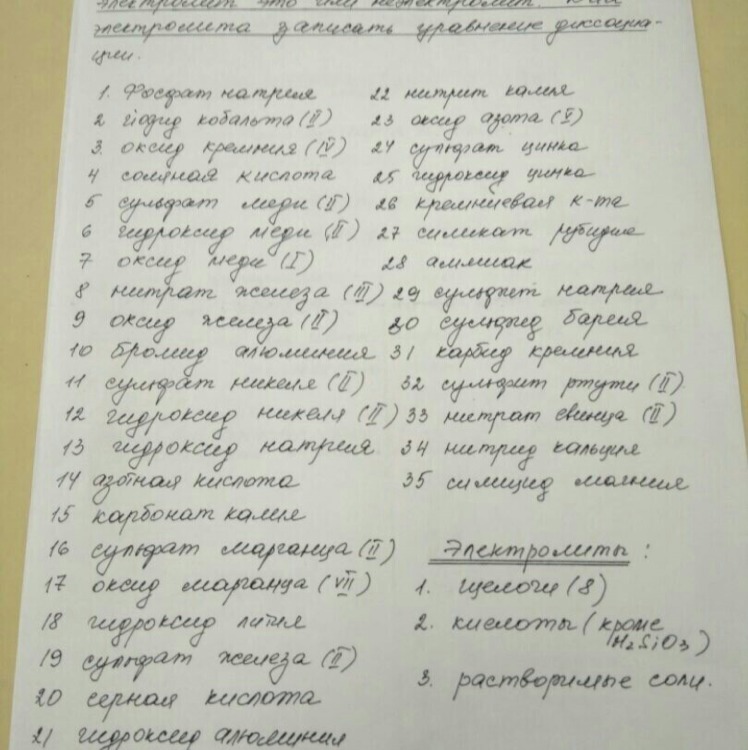 электролит это или неэлектролит. Для
электролита записать уравнение диссоциа-
ции.
1. Фосфат натрия
2 йодид кобальта (II)
3. оксид кремния (IV)
4 соляная кислота
5 сульфат меди (II)
6 гидроксид меди (II)
7 оксид меди (I)
8 нитрат железа (III)
9 оксид железа (II)
10 бромид алюминия
11 сульфат никеля (II)
12 гидроксид никеля (II)
13 гидроксид натрия
14 азотная кислота
15 карбонат калия
16 сульфат марганца (II)
17 оксид марганца (VII)
18 гидроксид лития
19 сульфат железа (II)
20 серная кислота
21 гидроксид алюминия
22 нитрит калия
23 оксид азота (V)
24 сульфат цинка
25 гидроксид цинка
26 кремниевая к-та
27 силикат рубидия
28 аммиак
29 сульфит натрия
30 сульфид бария
31 карбид кремния
32 сульфит ртути (II)
33 нитрат свинца (II)
34 нитрид кальция
35 силицид магния
Электролиты:
1. щелочи (8)
2. кислоты (кроме
H2SiO3)
3. растворимые соли.